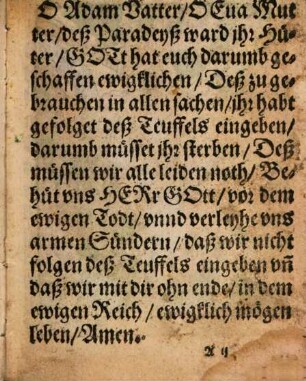 O Adam Vatter/ O Eua Mut
ter/ deß Paradeyß ward jhr Hü⸗
ter/ GOtt hat euch darumb ge⸗
schaffen ewigklichen/ Deß zu ge⸗
brauchen in allen sachen/ jhr habt
gefolget deß Teuffels eingeben/
darumb müsset jhr sterben/ Deß
müssen wir alle leiden noth/ Be⸗
hüt vns HERr GOtt/ vor dem
ewigen Todt/ vnnd verleyhe vns
armen Sündern/ daß wir nicht
folgen deß Teuffels eingeben vñ
daß wir mit dir ohn ende/ in dem
ewigen Reich/ ewigklich mögen
leben/ Amen.
A ij